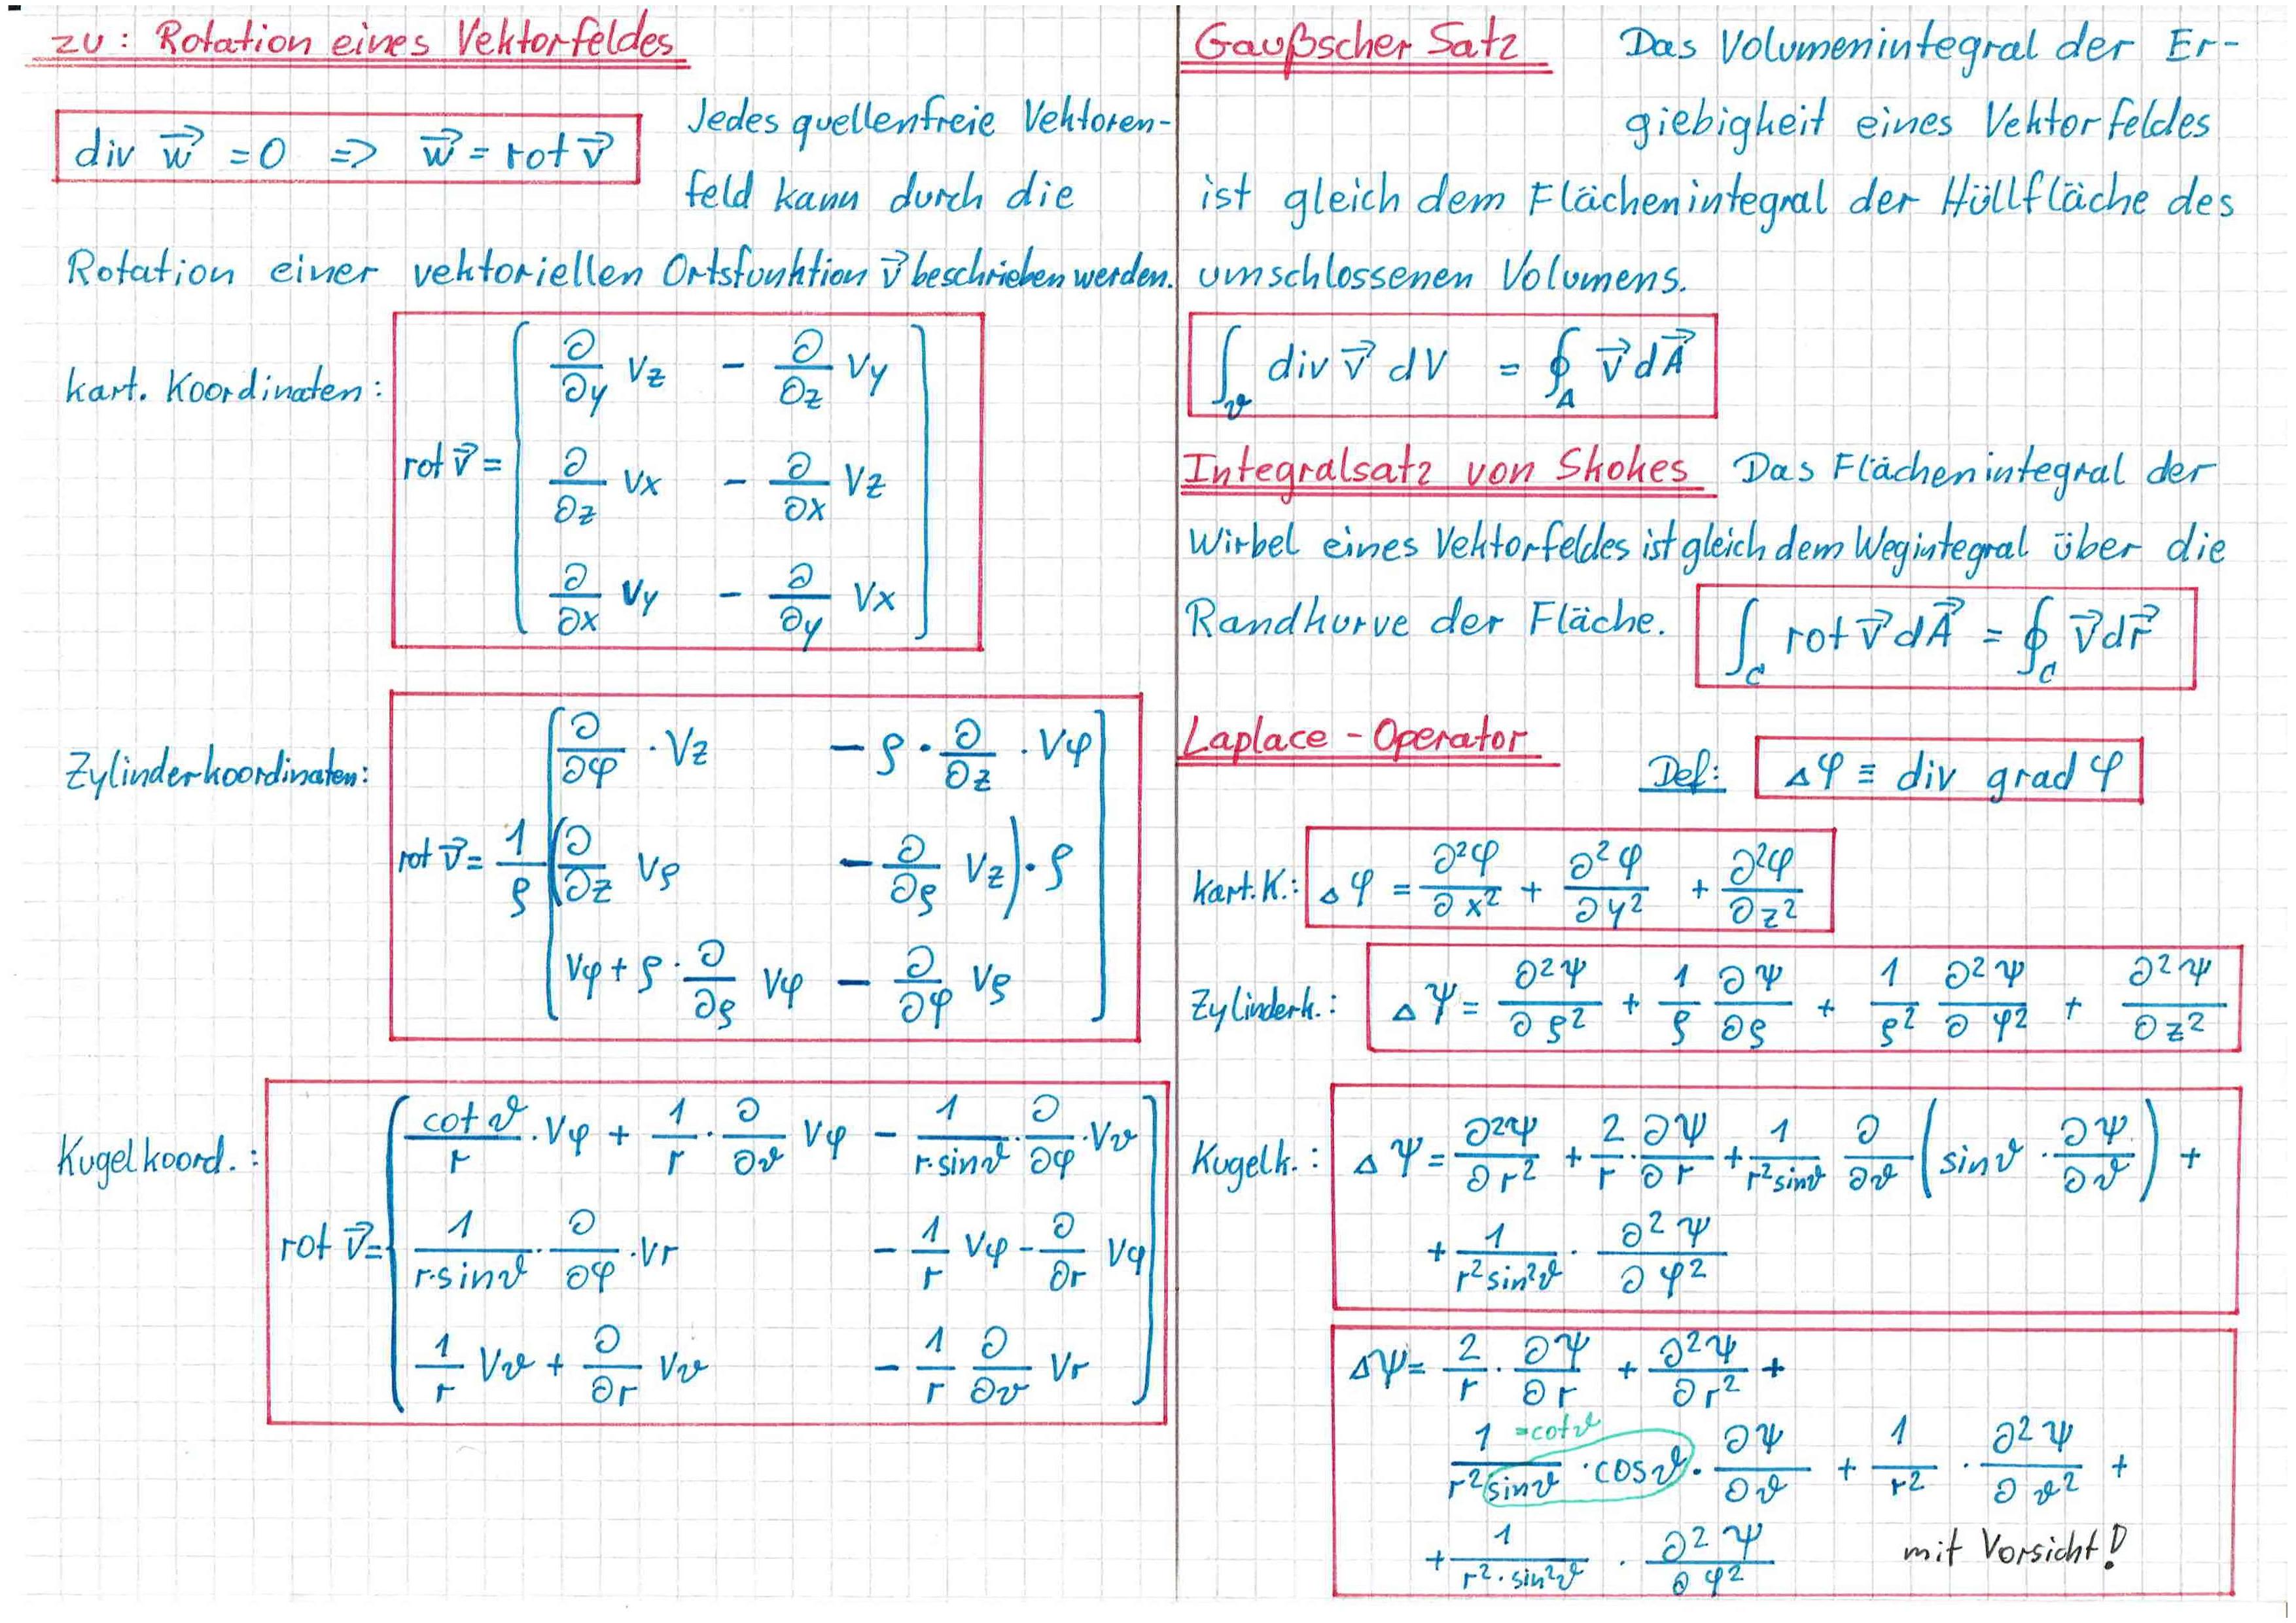 zu: Rotation eines Vektorfeldes
div w⃗ = 0 => w⃗ = rot v⃗
Jedes quellenfreie Vektoren-
feld kann durch die
Rotation einer vektoriellen Ortsfunktion v⃗ beschrieben werden.
kart. Koordinaten:
rot v⃗ =
∂/∂y Vz - ∂/∂z Vy
∂/∂z Vx - ∂/∂x Vz
∂/∂x Vy - ∂/∂y Vx
Zylinderkoordinaten:
rot v⃗ = 1/ρ
∂/∂φ · Vz - ρ · ∂/∂z · Vφ
(∂/∂z Vρ - ∂/∂ρ Vz) · ρ
Vφ + ρ · ∂/∂ρ Vφ - ∂/∂φ Vρ
Kugelkoord.:
rot v⃗ =
cot ϑ/r · Vφ + 1/r · ∂/∂ϑ Vφ - 1/(r·sinϑ) · ∂/∂φ · Vϑ
1/(r·sinϑ) · ∂/∂φ · Vr - 1/r Vφ - ∂/∂r Vφ
1/r Vϑ + ∂/∂r Vϑ - 1/r ∂/∂ϑ Vr
Gaußscher Satz Das Volumenintegral der Er-
giebigkeit eines Vektorfeldes
ist gleich dem Flächenintegral der Hüllfläche des
umschlossenen Volumens.
∫v div v⃗ dV = ∮A v⃗ dA⃗
Integralsatz von Skokes Das Flächenintegral der
Wirbel eines Vektorfeldes ist gleich dem Wegintegral über die
Randkurve der Fläche. ∫C rot v⃗ dA⃗ = ∮C v⃗ dr⃗
Laplace-Operator
Def: Δφ ≡ div grad φ
kart. K.: Δφ = ∂²φ/∂x² + ∂²φ/∂y² + ∂²φ/∂z²
Zylinderk.: Δψ = ∂²ψ/∂ρ² + 1/ρ ∂ψ/∂ρ + 1/ρ² ∂²ψ/∂φ² + ∂²ψ/∂z²
Kugelk.: Δψ = ∂²ψ/∂r² + 2/r · ∂ψ/∂r + 1/(r² sinϑ) ∂/∂ϑ (sinϑ · ∂ψ/∂ϑ) +
+ 1/(r² sin²ϑ) · ∂²ψ/∂φ²
Δψ = 2/r · ∂ψ/∂r + ∂²ψ/∂r² +
=cotϑ
1/(r² sinϑ) · cosϑ · ∂ψ/∂ϑ + 1/r² · ∂²ψ/∂ϑ² +
+ 1/(r² · sin²ϑ) · ∂²ψ/∂φ² mit Vorsicht!